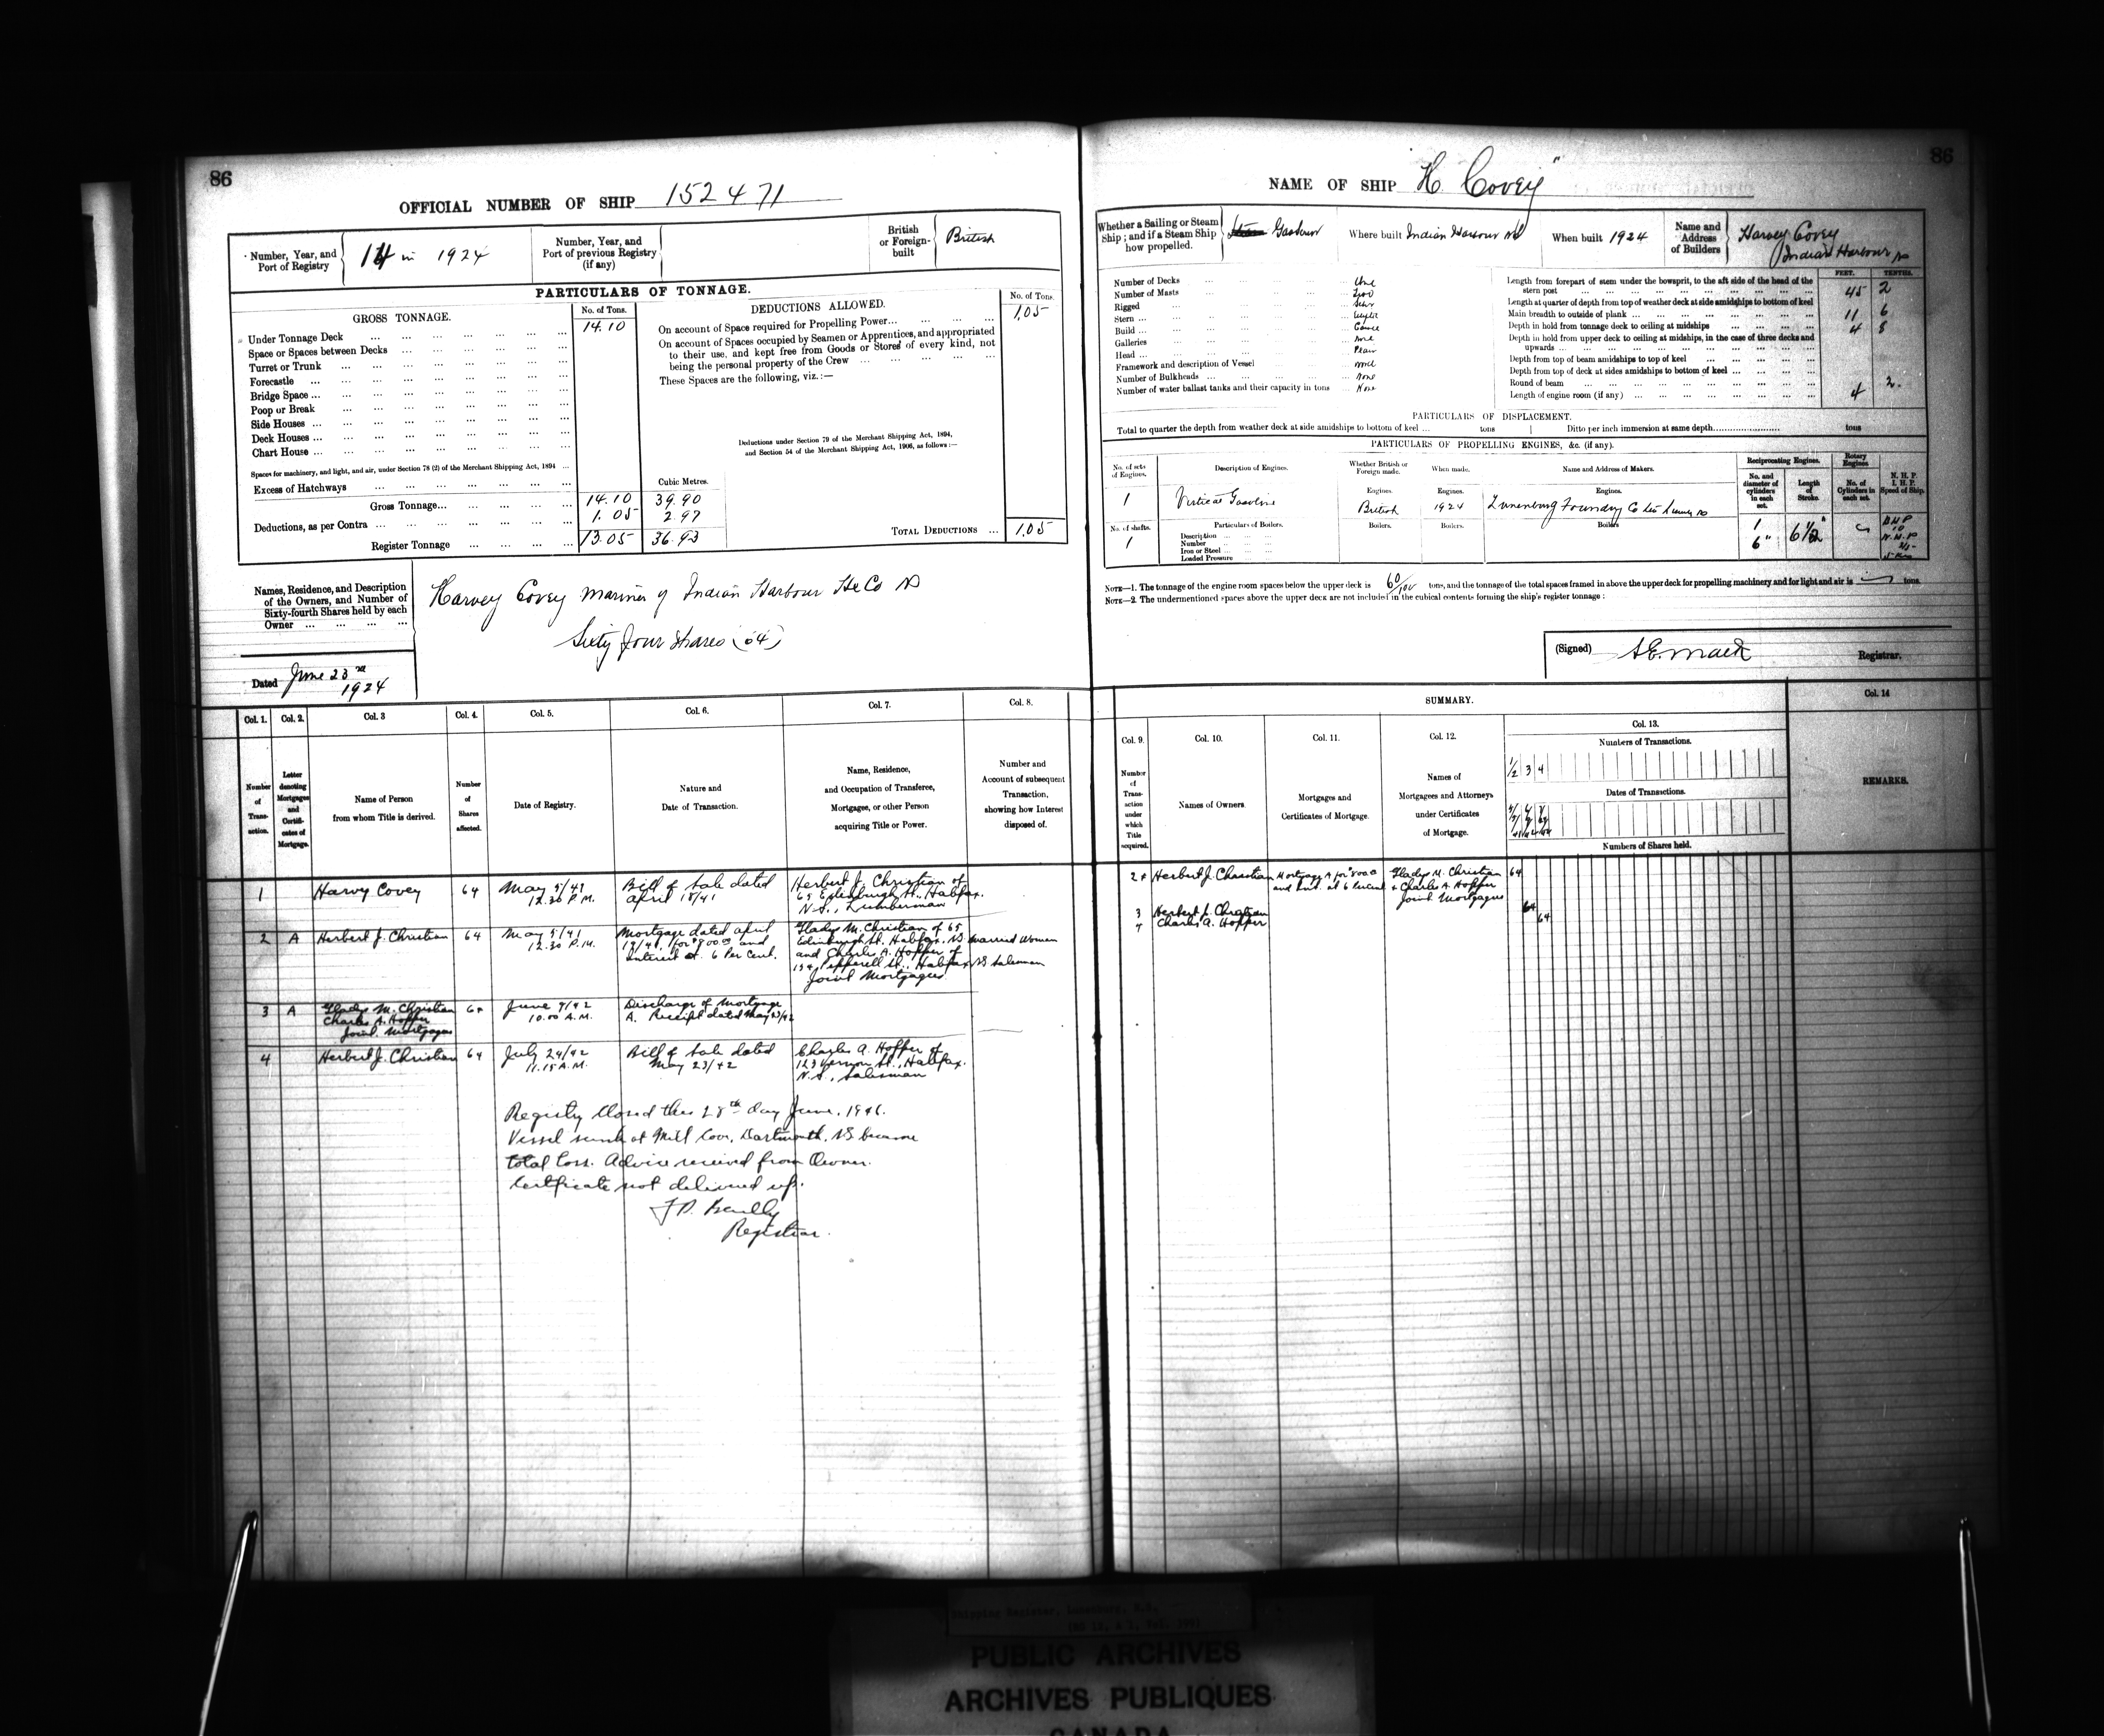 86
OFFICIAL NUMBER OF SHIP 152471
Number, Year, and Port of Registry
14 in 1924
Number, Year, and Port of previous Registry (if any)
British or Foreign-built
British
PARTICULARS OF TONNAGE.
GROSS TONNAGE.
No. of Tons.
Under Tonnage Deck ... 14.10
Space or Spaces between Decks ...
Turret or Trunk ...
Forecastle ...
Bridge Space ...
Poop or Break ...
Side Houses ...
Deck Houses ...
Chart House ...
Spaces for machinery, and light, and air, under Section 78 (2) of the Merchant Shipping Act, 1894 ...
Excess of Hatchways ...
Cubic Metres.
Gross Tonnage... 14.10 39.90
Deductions, as per Contra ... 1.05 2.97
Register Tonnage ... 13.05 36.93
DEDUCTIONS ALLOWED.
No. of Tons.
On account of Space required for Propelling Power... 1.05
On account of Spaces occupied by Seamen or Apprentices, and appropriated
to their use, and kept free from Goods or Stores of every kind, not
being the personal property of the Crew ...
These Spaces are the following, viz.:—
Deductions under Section 79 of the Merchant Shipping Act, 1894,
and Section 54 of the Merchant Shipping Act, 1906, as follows:—
TOTAL DEDUCTIONS ... 1.05
Names, Residence, and Description
of the Owners, and Number of
Sixty-fourth Shares held by each
Owner ...
Harvey Covey Mariner of Indian Harbour Hx Co NS
Sixty four Shares (64)
Dated June 23rd
1924
Col. 1. Col. 2. Col. 3 Col. 4. Col. 5. Col. 6. Col. 7. Col. 8.
Number of Transaction.
Letter denoting Mortgages and Certificates of Mortgage.
Name of Person from whom Title is derived.
Number of Shares affected.
Date of Registry.
Nature and Date of Transaction.
Name, Residence, and Occupation of Transferee, Mortgagee, or other Person acquiring Title or Power.
Number and Account of subsequent Transaction, showing how Interest disposed of.
1 Harvy Covey 64 May 5/41 12.30 P.M. Bill of Sale dated April 18/41 Herbert J. Christian of 65 Edinburgh St., Halifax. N.S., Lumberman
2 A Herbert J. Christian 64 May 5/41 12.30 P.M. Mortgage dated April 19/41, for $800.00 and interest at 6 Per Cent. Gladys M. Christian of 65 Edinburgh St. Halifax. NS Married Woman and Charles A. Hopper of Pepperell St., Halifax NS Salesman Joint Mortgagees
3 A Gladys M. Christian Charles A. Hopper Joint Mortgagees 64 June 9/42 10.00 A.M. Discharge of Mortgage A. Receipt dated May 23/42
4 Herbert J. Christian 64 July 24/42 11.15 A.M. Bill of Sale dated May 23/42 Charles A. Hopper of 123 Vernon St., Halifax. N.S., Salesman
Registry closed this 28th day June, 1946.
Vessel sunk at Mill Cove, Dartmouth, NS became
total loss. Advice received from Owner.
Certificate not delivered up.
Registrar.
86
NAME OF SHIP "H. Covey"
Whether a Sailing or Steam Ship; and if a Steam Ship how propelled.
Where built Indian Harbour NS
When built 1924
Name and Address of Builders
Harvey Covey
Indian Harbour NS
Number of Decks ... One
Number of Masts ... Two
Rigged ... Schr
Stern ...
Build ... Carvel
Galleries ... None
Head ... Plain
Framework and description of Vessel ... Wood
Number of Bulkheads ... None
Number of water ballast tanks and their capacity in tons ... None
FEET. TENTHS.
Length from forepart of stem under the bowsprit, to the aft side of the head of the
stern post ... 45 2
Length at quarter of depth from top of weather deck at side amidships to bottom of keel
Main breadth to outside of plank ... 11 6
Depth in hold from tonnage deck to ceiling at midships ... 4 8
Depth in hold from upper deck to ceiling at midships, in the case of three decks and
upwards ...
Depth from top of beam amidships to top of keel ...
Depth from top of deck at sides amidships to bottom of keel ...
Round of beam ... 2.
Length of engine room (if any) ... 4
PARTICULARS OF DISPLACEMENT.
Total to quarter the depth from weather deck at side amidships to bottom of keel ... tons
Ditto per inch immersion at same depth... tons
PARTICULARS OF PROPELLING ENGINES, &c. (if any).
No. of sets of Engines.
Description of Engines.
Whether British or Foreign made.
When made.
Name and Address of Makers.
Reciprocating Engines.
Rotary Engines
No. and diameter of cylinders in each set.
Length of Stroke.
No. of Cylinders in each set.
N. H. P.
I. H. P.
Speed of Ship.
Engines. Engines. Engines.
1 Virtical Gasoline British 1924 Lunenburg Foundry Co Ltd
No. of shafts. Particulars of Boilers. Boilers. Boilers. Boilers.
1
Description ...
Number ...
Iron or Steel ...
Loaded Pressure ...
1
6" 6 1/2"
BHP
10
NOTE—1. The tonnage of the engine room spaces below the upper deck is 60/100 tons, and the tonnage of the total spaces framed in above the upper deck for propelling machinery and for light and air is tons.
NOTE—2. The undermentioned spaces above the upper deck are not included in the cubical contents forming the ship's register tonnage:
(Signed) Registrar.
SUMMARY.
Col. 9. Col. 10. Col. 11. Col. 12. Col. 13. Col. 14
Number of Transaction under which Title acquired.
Names of Owners.
Mortgages and Certificates of Mortgage.
Names of Mortgagees and Attorneys under Certificates of Mortgage.
Numbers of Transactions.
1/2 3 4
Dates of Transactions.
Numbers of Shares held.
REMARKS.
Herbert J. Christian Mortgage A for $800 and int. at 6 Percent Gladys M. Christian & Charles A. Hopper Joint Mortgagees 64
3 Herbert J. Christian 64
Charles A. Hopper 64
PUBLIC ARCHIVES
ARCHIVES PUBLIQUES
CANADA